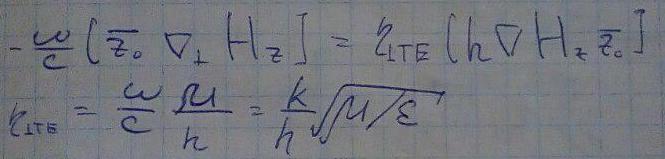 -ω/c [z̄₀ ∇⊥ H_z] = η⊥TE [h ∇ H_z z̄₀]
η⊥TE = ω/c μ/h = k/h √μ/ε